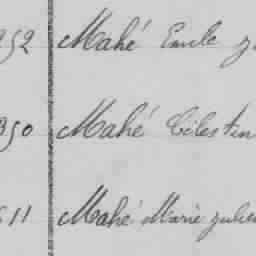 252 Mahé Emile
350 Mahé Célestin
11 Mahé Marie Julie